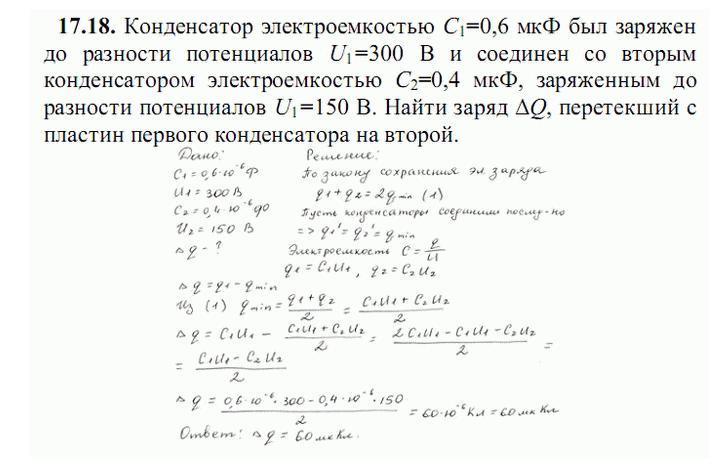 17.18. Конденсатор электроемкостью C₁=0,6 мкФ был заряжен
до разности потенциалов U₁=300 В и соединен со вторым
конденсатором электроемкостью C₂=0,4 мкФ, заряженным до
разности потенциалов U₁=150 В. Найти заряд ΔQ, перетекший с
пластин первого конденсатора на второй.
Дано: Решение:
C₁=0,6·10⁻⁶ Ф По закону сохранения эл заряда
U₁ = 300 В q₁+q₂=2q min (1)
C₂=0,4·10⁻⁶ Пусть конденсаторы соединили послед-но
U₂ = 150 В => q₁'=q₂'=q min
Δq - ? Электроемкость C = q/U
q₁ = C₁U₁, q₂=C₂U₂
Δq = q₁ - q min
Из (1) q min = (q₁+q₂)/2 = (C₁U₁+C₂U₂)/2
Δq = C₁U₁ - (C₁U₁+C₂U₂)/2 = (2C₁U₁-C₁U₁-C₂U₂)/2 =
= (C₁U₁-C₂U₂)/2
Δq = (0,6·10⁻⁶·300-0,4·10⁻⁶·150)/2 = 60·10⁻⁶ Кл = 60 мк Кл
Ответ: Δq = 60 мк Кл.